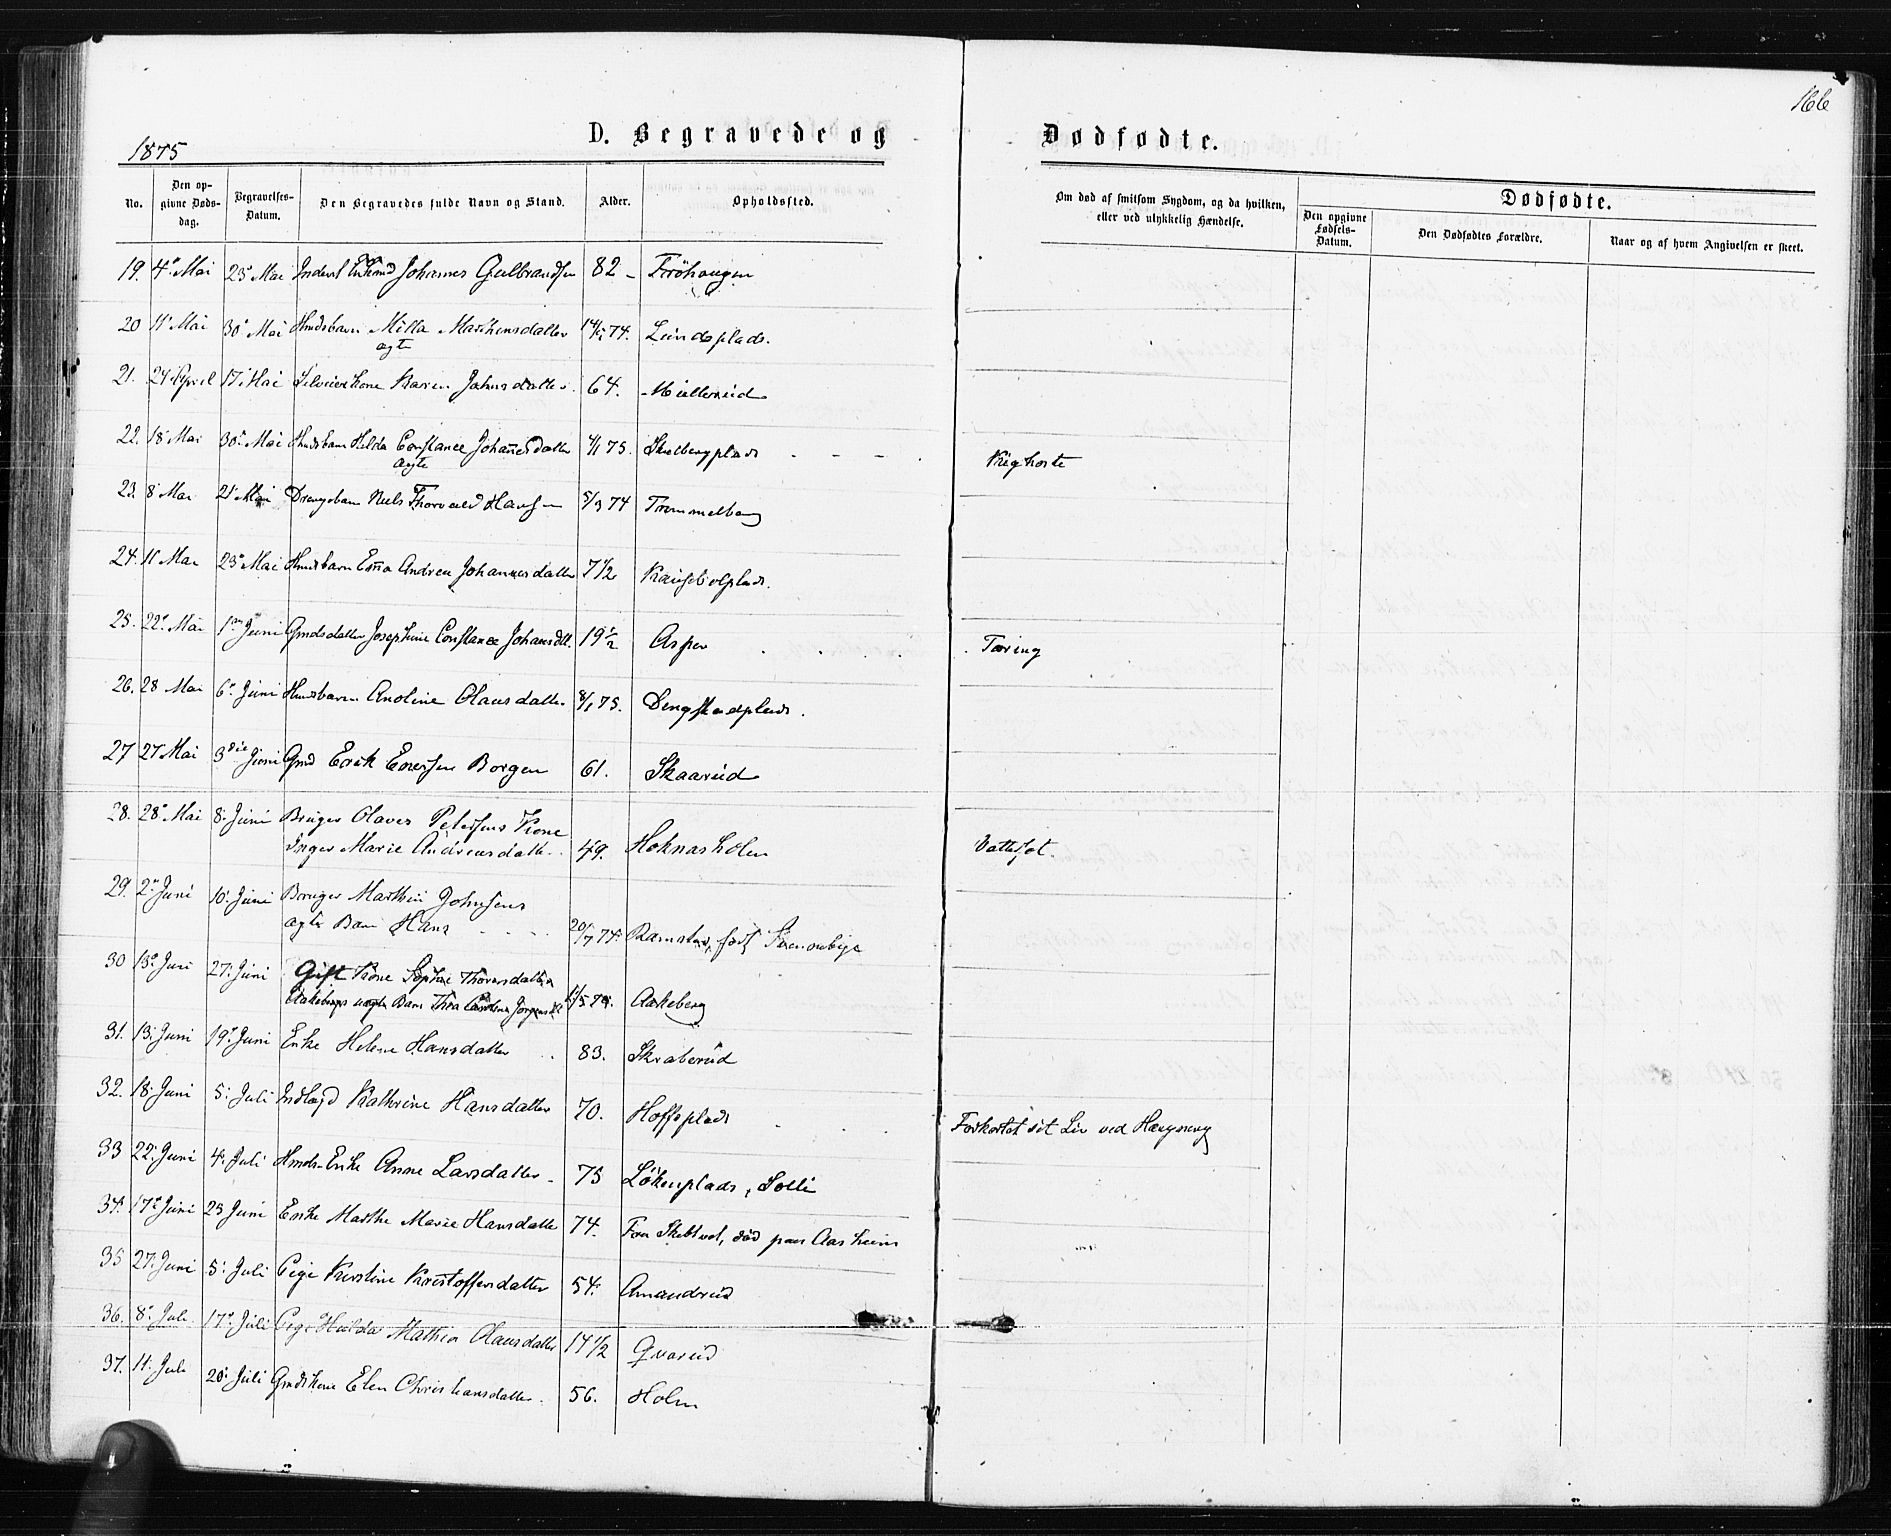 166
1875
D. Begravede og Dødfødte.
No. Den opgivne Dødsdag. Begravelses-Datum. Den Begravedes fulde Navn og Stand. Alder. Opholdssted. Om død af smitsom Sygdom, og da hvilken, eller ved ulykkelig Hændelse. Dødfødte.
Den opgivne Fødsels-Datum. Den Dødfødtes Forældre. Naar og af hvem Angivelsen er skeet.
19. 4de Mai 23de Mai Enkemd Johannes Gulbrandsen 82 - Frøhaugen
20 11 Mai 30 Mai Hmdsbarn Milla Marthinsdatter 74. Lundsplads.
ægte
21. 24 April 17 Mai Kone Karen Johnsdatter 64. Müllerud
22. 18 Mai 30 Mai Hmdsbarn Hilda Constance Johannesdatter 4/1 75. Skulbergplads Kighoste
ægte
23. 8 Mai 21 Mai Drengebarn Niels Thorvald Hansen 5/3 74 Trommelberg
24. 11 Mai 23 Mai Hmdsbarn Emma Andrea Johannesdatter 7 1/2
25. 22 Mai 1 Juni Gmdsdatter Josephine Constance Johansdtt. 19 1/2 Asper Tæring
26. 28 Mai 6 Juni Hmdsbarn Anoline Olausdatter 8/1 75. Dengstadplads.
27 27 Mai 3die Juni Gmd Erik Enersen Borgen 61. Skaarud
28. 28 Mai 8 Juni Bruger Olaves Petersens Kone
Inger Marie Andreasdatter 49. Hoknasholm Vattersot.
29. 2 Juni 10 Juni Bruger Marthin Johnsens
ægte Barn Hans 20/7 74. Ramstad, født
30 13 Juni 27 Juni Gift Kone Sophie Thorvesdatter
Aakebergs uægte Barn Thea Jørgensdtt Aakeberg
31. 13 Juni 19 Juni Enke Helene Hansdatter 83. Skraberud
32. 18 Juni 5 Juli Indlagd Kathrine Hansdatter 70. Hoffsplads Forkortet sit Liv ved Hængning
33 22 Juni 4 Juli Hmds-Enke Anne Larsdatter 75 Løkenplads, Solli
34. 17 Juni 23 Juni Enke Marthe Marie Hansdatter 74. Fra død paa Aasheim
35 27 Juni 5 Juli Pige Kirstine Kristoffersdatter 54. Amundrud
36. 8 Juli 17 Juli Pige Hulda Mathea Olausdatter 14 1/2 Qvarud
37. 11 Juli 20 Juli Gmdskone Elen Christiansdatter 56. Holm